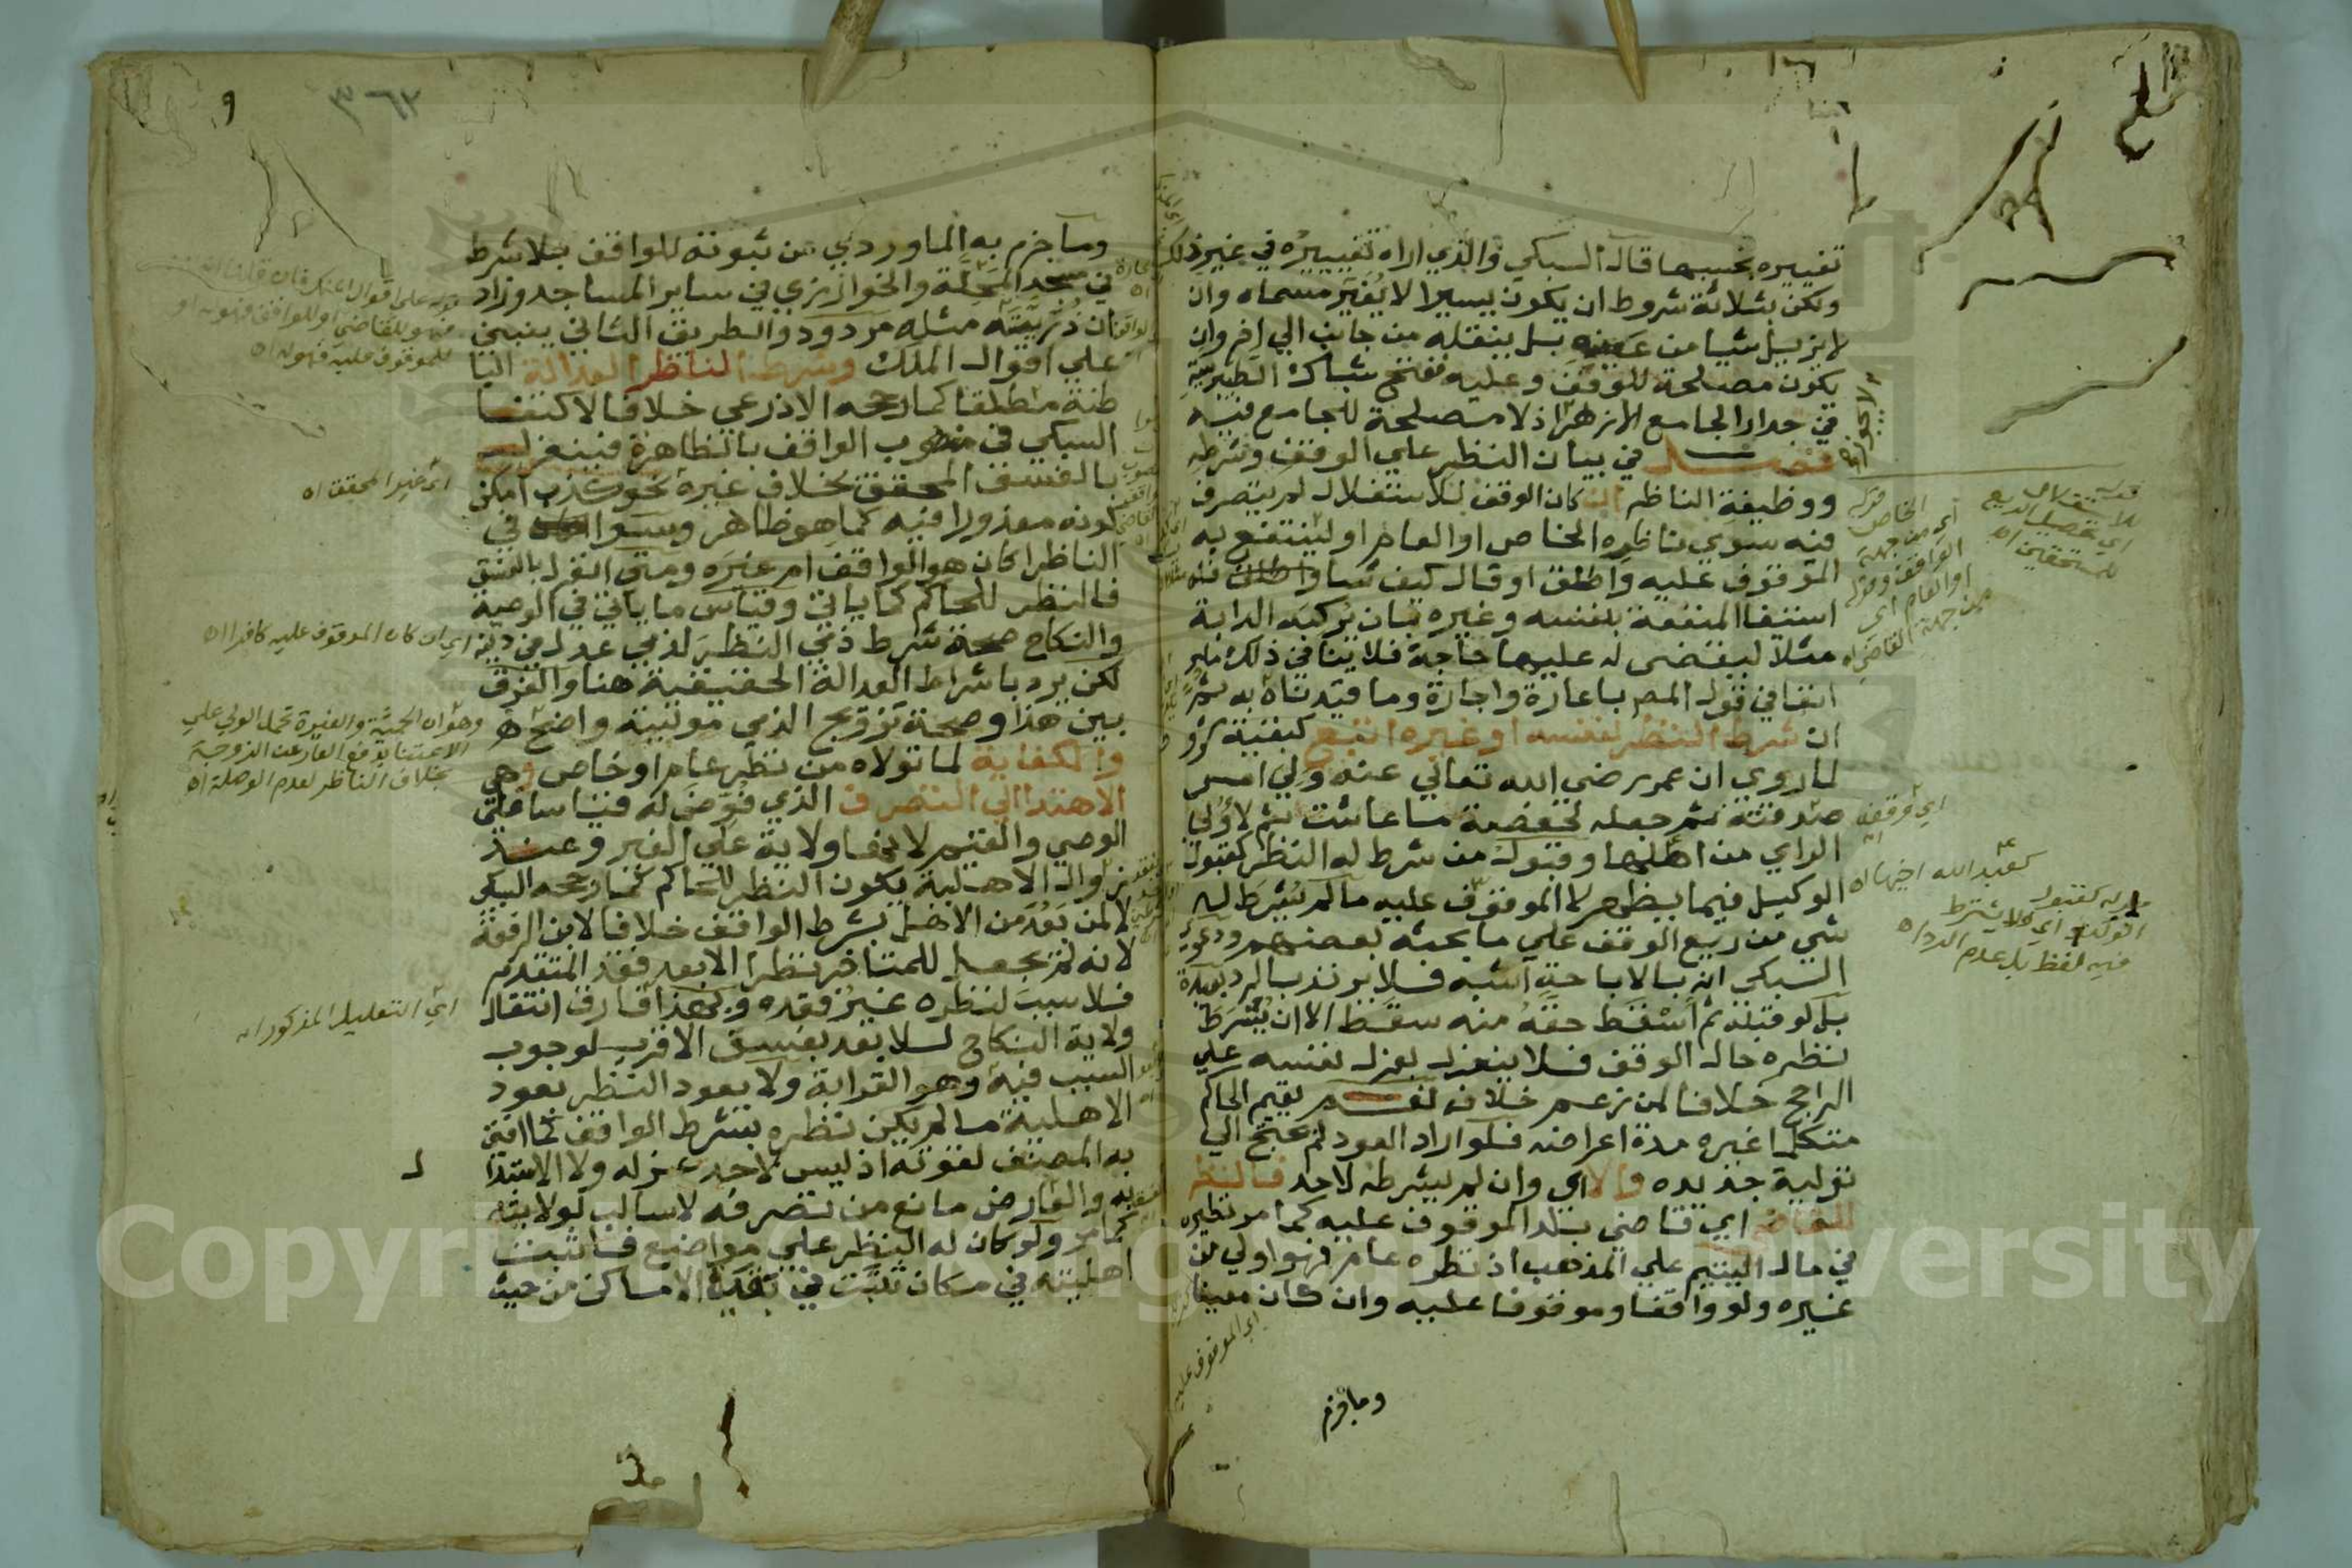 تغييره بحسبها قال السبكي والذي اراه تغييره في غير ذلك
ولكن بثلاثة شروط ان يكون يسيرا لا يغير مسماه وان
لا يزيل شيا من عينه بل ينقله من جانب الي اخر وان
يكون مصلحة للوقف وعليه ففتح شباك الطيبرسية
في جدار الجامع الازهر اذ لا مصلحة للجامع فيه
فصل في بيان النظر علي الوقف وشرطه
ووظيفة الناظر ان كان الوقف للاستغلال لم يتصرف
فيه سوي ناظره الخاص او العام او لينتفع به
الموقوف عليه واطلق او قال كيف شا
استيفا المنفعة بنفسه وغيره بان يركبه الدابة
مثلا ليقضي له عليها حاجة فلا ينافي ذلك مامر
انفا في قول المص باعارة واجارة وما قيدناه به ثم
ان شرط النظر لنفسه او غيره اتبع كبقية شروطه
لما روي ان عمر رضي الله تعالي عنه ولي امر
صدقته ثم جعله لحفصة ما عاشت ثم لاولي
الراي من اهلها وقبول من شرط له النظر كقبول
الوكيل فيما يظهر لا الموقوف عليه مالم يشرط له
شي من ريع الوقف علي ما بحثه بعضهم ودعوي
السبكي انه بالاباحة اشبه فلا يرتد بالرد بعيدة
بل لو قبله ثم اسقط حقه منه سقط الا ان يشرط
نظره حال الوقف فلا ينعزل بعزل نفسه علي
الراجح خلافا لمن زعم خلافه نعم يقيم الحاكم
متكلما غيره مدة اعراضه فلو اراد العود لم يحتج الي
تولية جديده والا اي وان لم يشرطه لاحد فالنظر
للقاضي اي قاضي بلد الموقوف عليه كما مر نظيره
في مال اليتيم علي المذهب اذ نظره عام فهو اولي من
غيره ولو واقفا وموقوفا عليه وان كان معينا
وما جزم
لا يجوز
قوله للاستغلال
اي تحصيل الريع
للمستحقين اه
قوله الخاص
اي من جهة
الواقف وقوله
او العام اي
من جهة القاضي اه
اي وقفه
كعبد الله اخيها اه
قوله كقبول
الوكيل اي فلا يشترط
فيه لفظ بل عدم الرد اه
اي الموقوف عليه
٩
٣٦٢
وما جزم به الماوردي من ثبوته للواقف بلا شرط
في مسجد المحلة والخوارزمي في ساير المساجد وزاد
ان ذريته مثله مردود والطريق الثاني ينبني
علي اقوال الملك وشرط الناظر العدالة البا
طنة مطلقا كما رجحه الاذرعي خلافا لاكتفا
السبكي في منصوب الواقف بالظاهرة فينعزل
بالفسق المحقق بخلاف غيره نحو كذب امكن
كونه معذورا فيه كما هو ظاهر وسوا في
الناظر اكان هو الواقف ام غيره ومتي انعزل بالفسق
فالنظر للحاكم كما ياتي وقياس ما ياتي في الوصية
والنكاح صحة شرط ذمي النظر لذمي عدل في دينه
لكن يرد باشراط العدالة الحقيقية هنا والفرق
بين هذا وصحة تزويج الذمي موليته واضح
والكفاية لما تولاه من نظر عام او خاص وهي
الاهتدا الي التصرف الذي فوض له قياسا علي
الوصي والقيم لانها ولاية علي الغير وعند
زوال الاهلية يكون النظر للحاكم كما رجحه السبكي
لا لمن بعده من الاهل بشرط الواقف خلافا لابن الرفعة
لانه لم يجعل للمتاخر نظرا الا بعد فقد المتقدم
فلا سبب لنظره غير فقده وبهذا فارق انتقال
ولاية النكاح للابعد بفسق الاقرب لوجوب
السبب فيه وهو القرابة ولا يعود النظر بعود
الاهلية مالم يكن نظره بشرط الواقف كما افتي
به المصنف لقوته اذ ليس لاحد عزله ولا الاستبدا
به والعارض مانع من تصرفه لا سالب لولايته
كما مر ولو كان له النظر علي مواضع فاثبت
اهليته في مكان ثبتت في بقية الاماكن من حيث
قوله علي اقوال الملك فان قلنا انه
فهو للقاضي او للواقف فهو له او
للموقوف عليه فهو له اه
اي غير المحقق اه
اي ان كان الموقوف عليه كافرا اه
وهو ان الحمية والغيرة تحمل الولي علي
الاعتنا بدفع العار عن الزوجة
بخلاف الناظر لعدم الوصلة اه
اي التعليل المذكور اه
Copyright © King Saud University